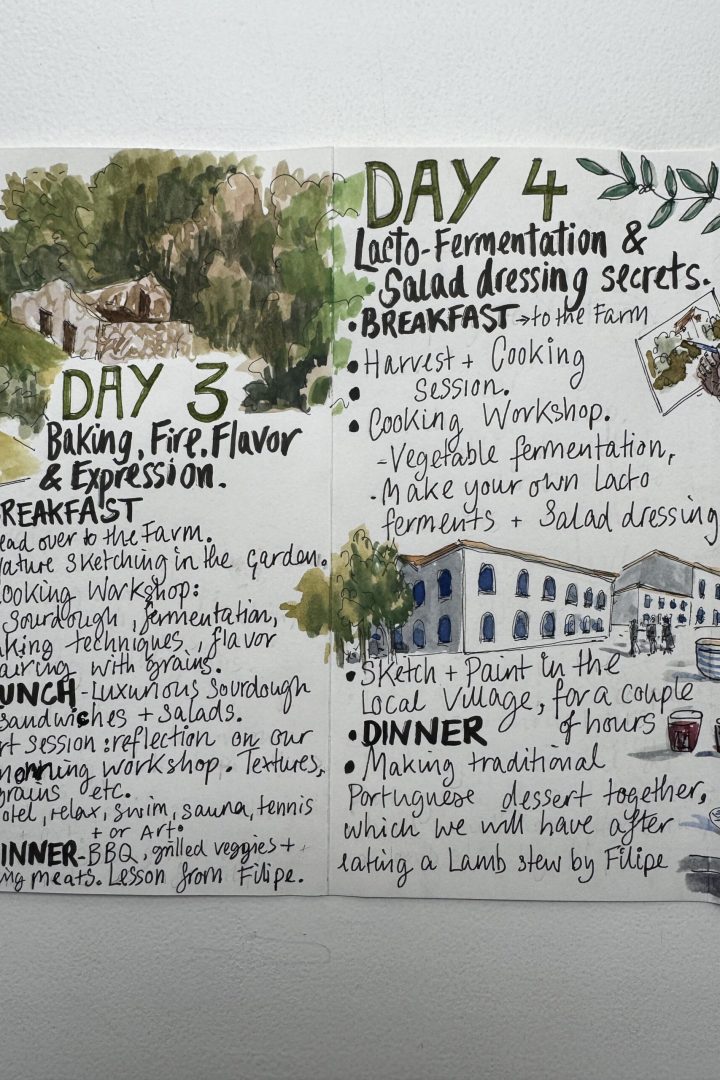 DAY 3
Baking, Fire, Flavor
& Expression.
REAKFAST
ead over to the Farm.
ature Sketching in the Garden.
ooking Workshop:
Sourdough, fermentation,
aking techniques, flavor
airing with grains.
UNCH - Luxurious Sourdough
sandwiches + salads.
rt session: reflection on our
morning workshop. Textures,
grains etc.
otel, relax, swim, sauna, tennis
+ or Art.
INNER - BBQ, grilled veggies +
ing meats. Lesson from Filipe.
DAY 4
Lacto-Fermentation &
• Salad dressing secrets.
• BREAKFAST → to the Farm
• Harvest + Cooking
• Session.
• Cooking Workshop.
- Vegetable fermentation,
- Make your own Lacto
ferments + Salad dressing
• Sketch + Paint in the
Local Village, for a couple
of hours
• DINNER
• Making traditional
Portuguese dessert together,
which we will have after
eating a Lamb stew by Filipe